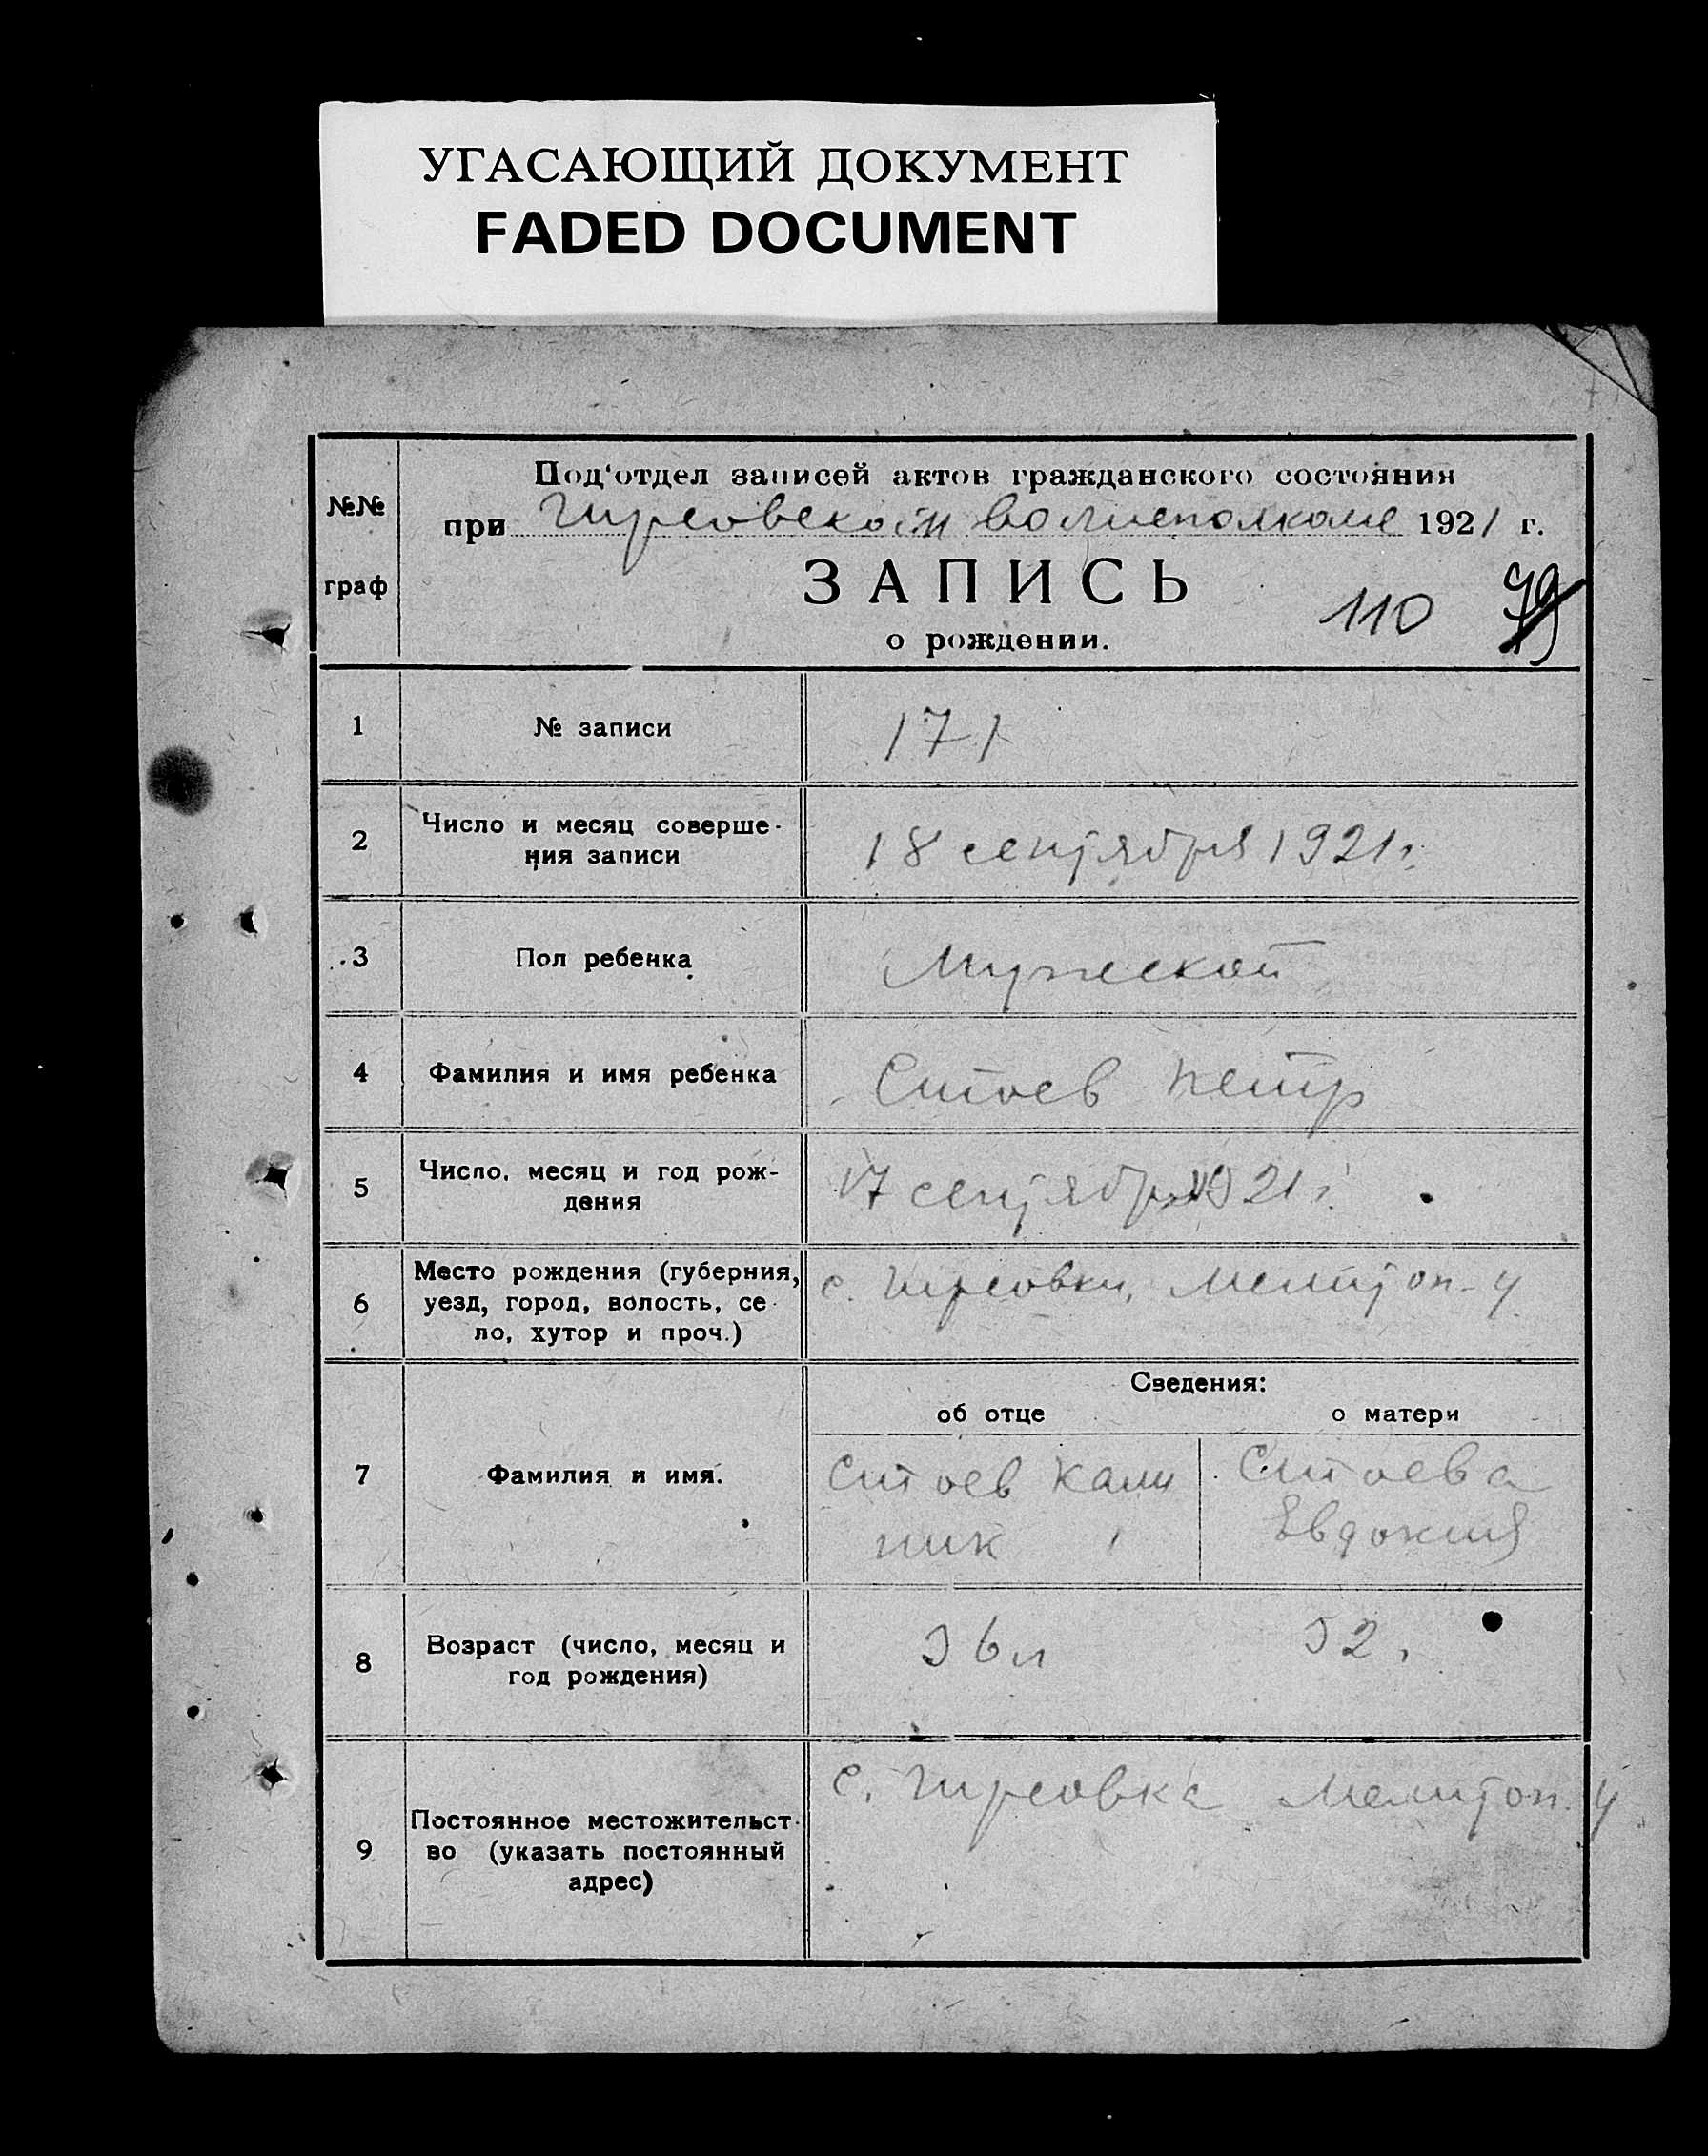 УГАСАЮЩИЙ ДОКУМЕНТ
FADED DOCUMENT
№№
граф
Под‘отдел записей актов гражданского состояния
при Гирсовском волисполкоме 1921 г.
ЗАПИСЬ
о рождении.
110 79
1 № записи 171
2 Число и месяц соверше-
ния записи
18 сентября 1921 г.
3 Пол ребенка Мужской
4 Фамилия и имя ребенка Стоев Петр
5 Число, месяц и год рож-
дения
17 сентября 1921 г.
6 Место рождения (губерния,
уезд, город, волость, се
ло, хутор и проч.)
с. Гирсовки, Мелитоп. у
Сведения:
об отце о матери
7 Фамилия и имя.
Стоев Кали
ник
Стоева
Евдокия
8 Возраст (число, месяц и
год рождения)
36 л 32.
9 Постоянное местожительст-
во (указать постоянный
адрес)
с. Гирсовка Мелитоп. у